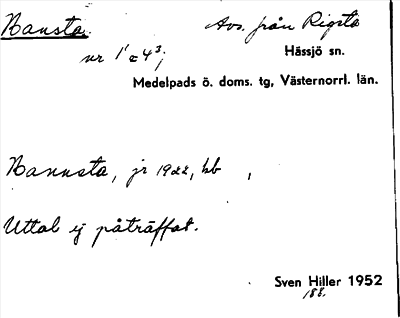 Bansta. Avs. från Rigsta
nr 1¹ o 4³; Hässjö sn.
Medelpads ö. doms. tg, Västernorrl. län.
Bannsta, jr 1922, hb ,
Uttal ej påträffat.
Sven Hiller 1952
188.